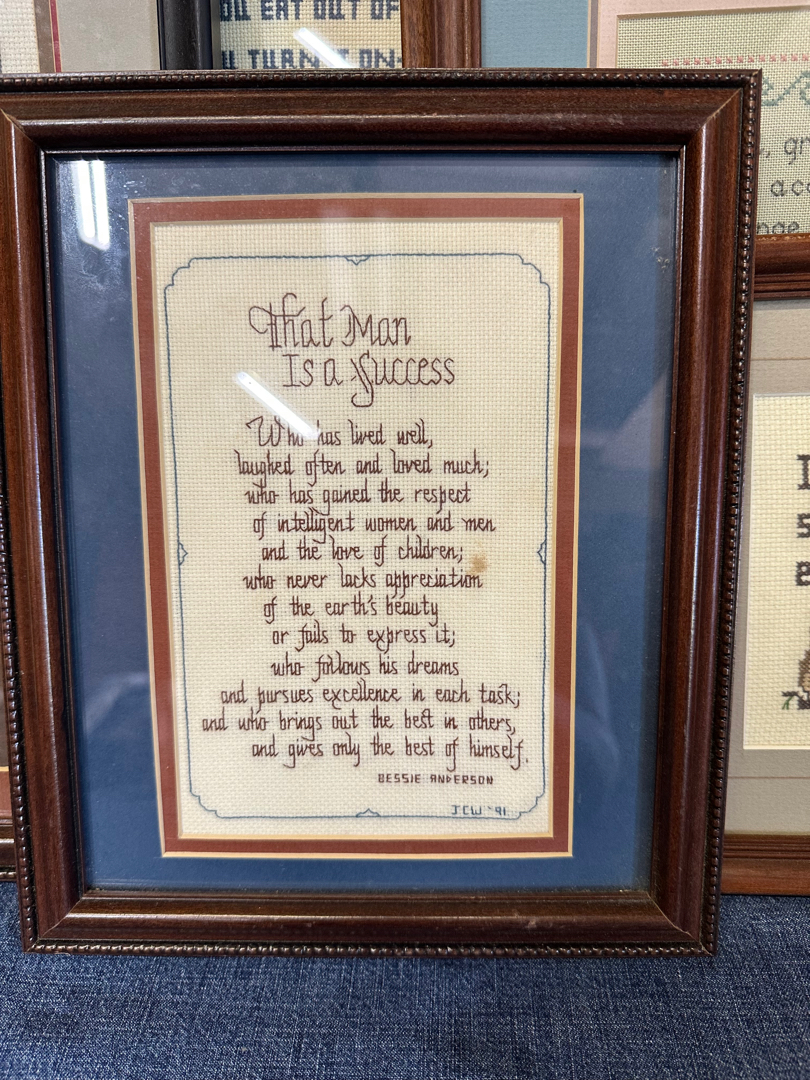 OU EAT OUT OF
U TURN IT ON
gr
That Man
Is a Success
Who has lived well,
laughed often and loved much;
who has gained the respect
of intelligent women and men
and the love of children;
who never lacks appreciation
of the earth's beauty
or fails to express it;
who follows his dreams
and pursues excellence in each task;
and who brings out the best in others,
and gives only the best of himself.
BESSIE ANDERSON
JCW '91